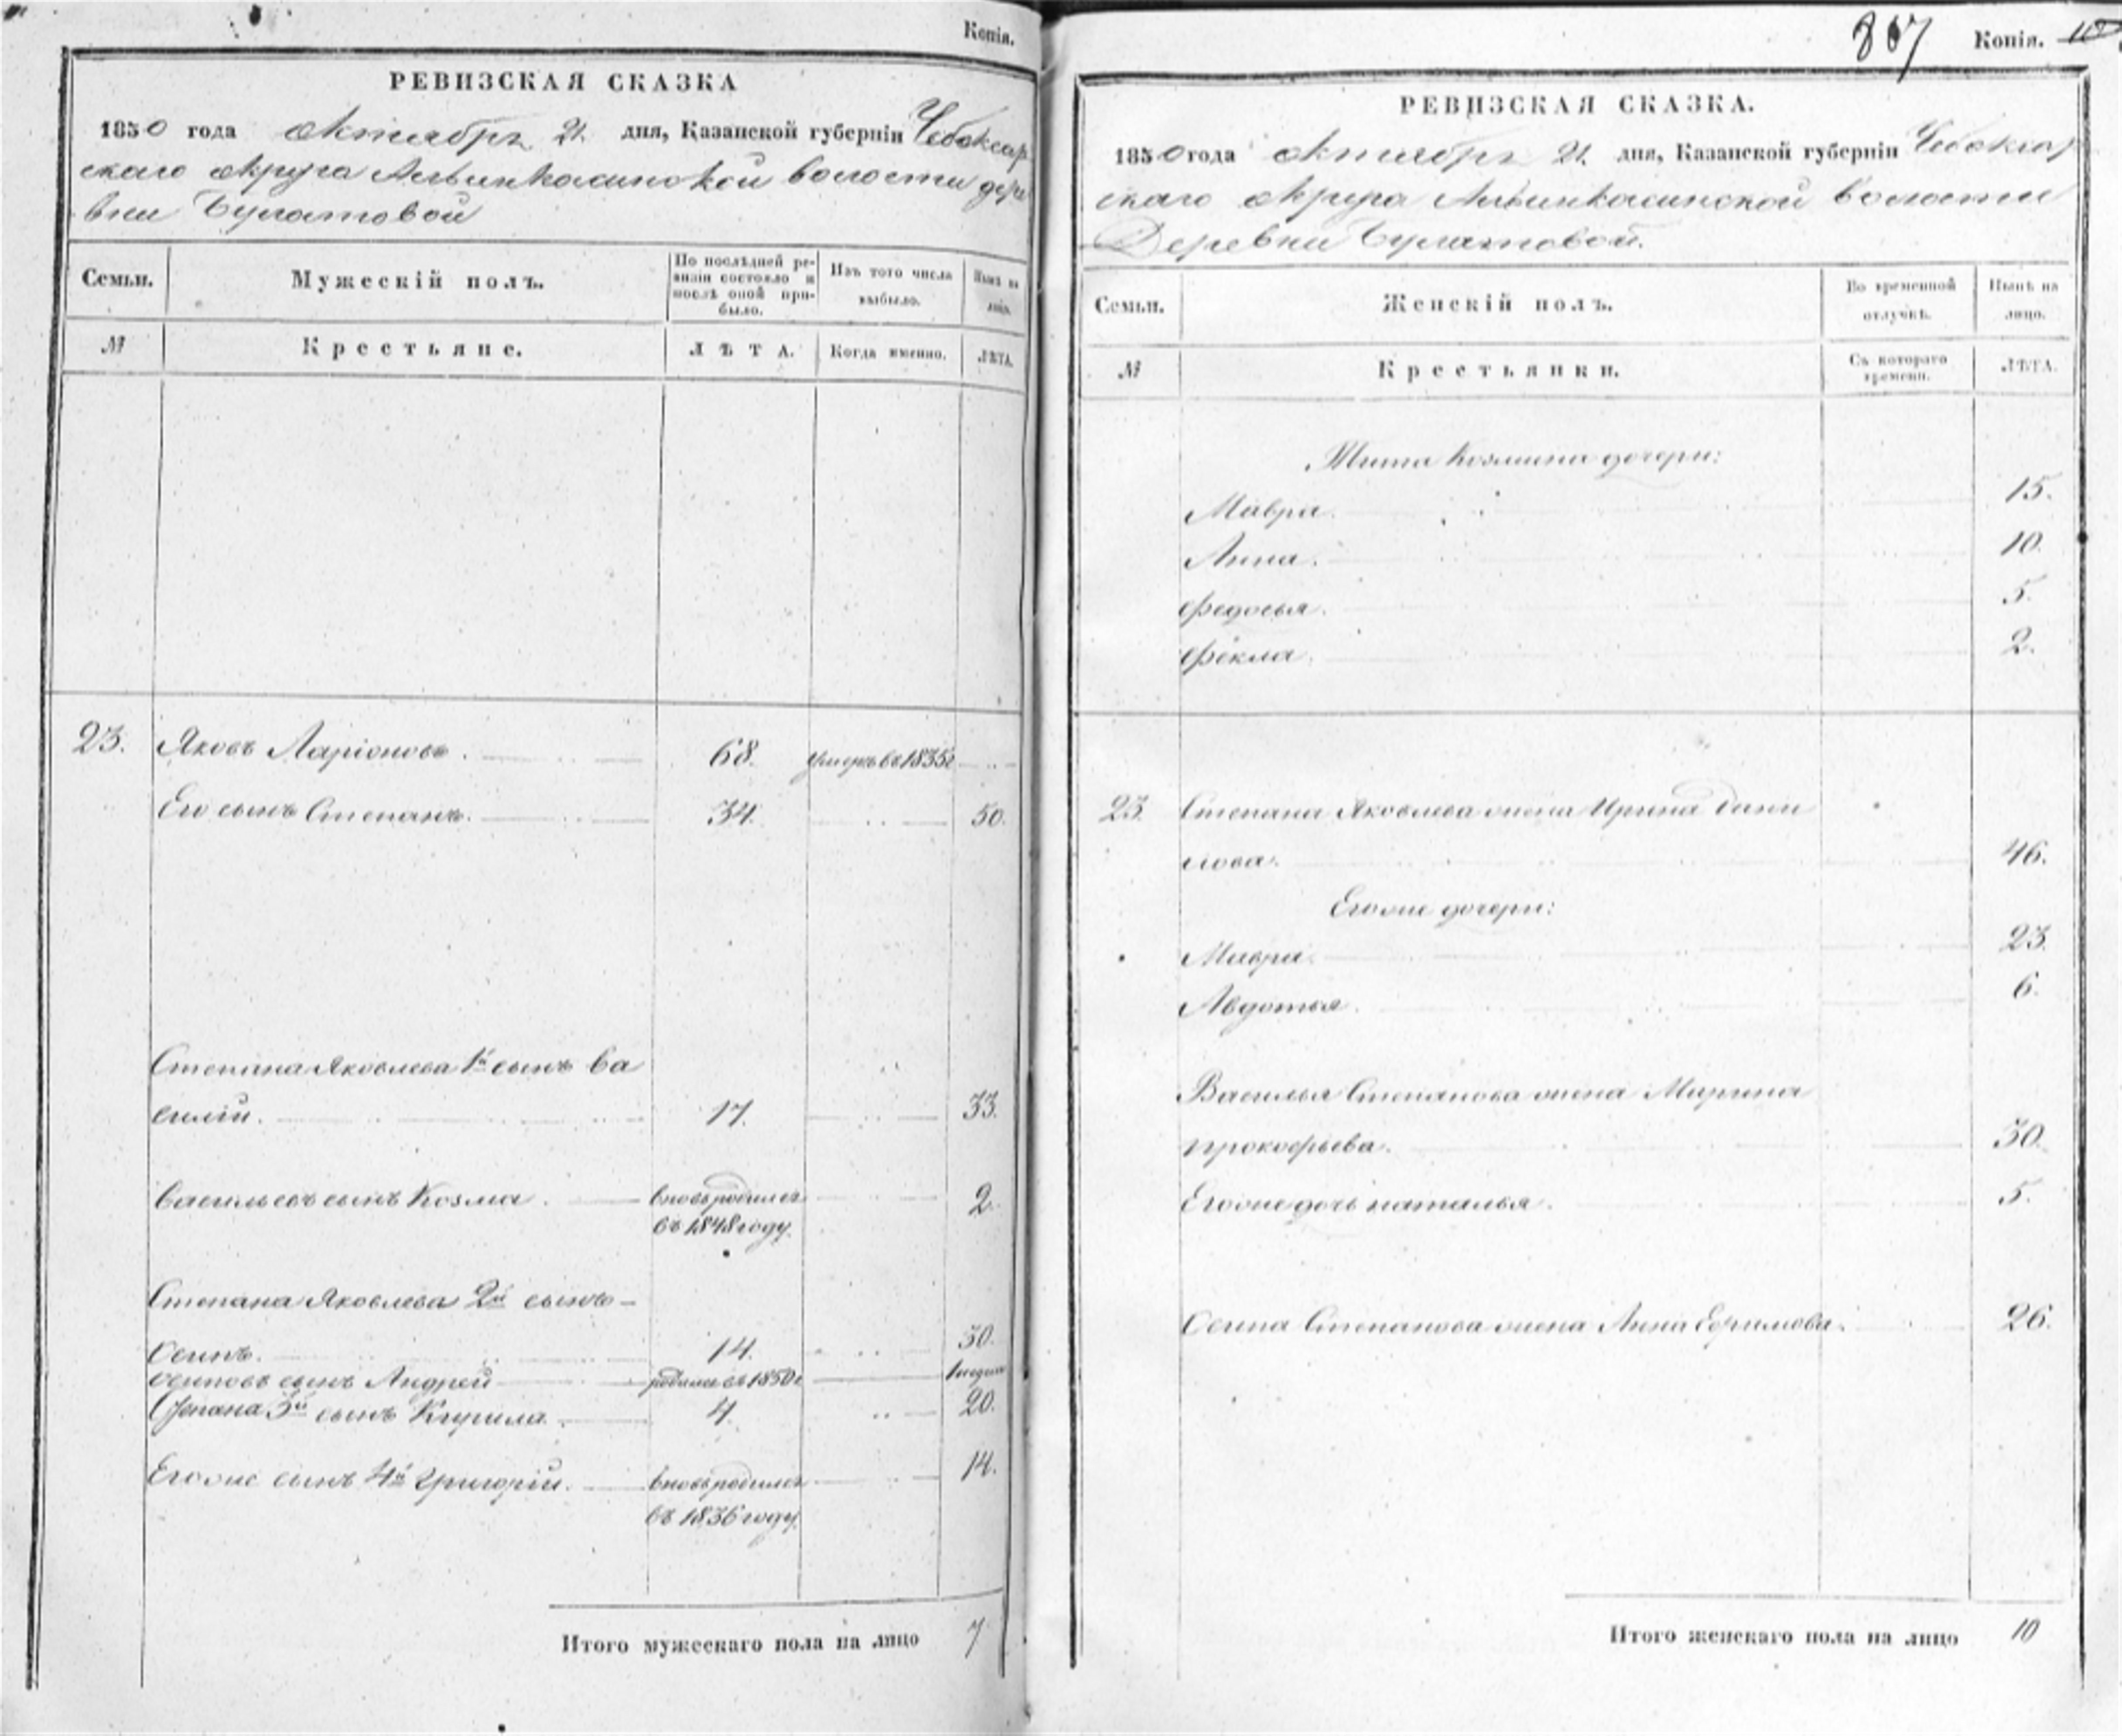 Копія.
РЕВИЗСКАЯ СКАЗКА
1850 года октября 21 дня, Казанской губерніи Чебоксар
скаго округа Алымкасинской волости дере
вни Булатовой
Семьи.
Мужескій полъ.
По послѣдней ре-
визіи состояло и
послѣ оной при-
было.
Изъ того числа
выбыло.
Нынѣ на
лицо.
№
Крестьяне.
ЛѢТА.
Когда именно.
ЛѢТА.
23. Яковъ Ларіоновъ. 68. умеръ въ 1835г
Его сынъ Степанъ. 34. 50.
Степана Яковлева 1й сынъ Ва
силій. 17. 33.
Васильевъ сынъ Козма. вновь родился 2.
въ 1848 году.
Степана Яковлева 2й сынъ
Осипъ. 14. 30.
Осиповъ сынъ Андрей родился въ 1850г
Степана 3й сынъ Кирила. 4. 20.
Егоже сынъ 4й Григорій. вновь родился 14.
въ 1836 году.
Итого мужескаго пола на лицо 7
807 Копія.
РЕВИЗСКАЯ СКАЗКА.
1850 года октября 21. дня, Казанской губерніи Чебоксар
скаго округа Алымкасинской волости
Деревни Булатовой.
Семьи.
Женскій полъ.
Во временной
отлучкѣ.
Нынѣ на
лицо.
№
Крестьянки.
Съ котораго
времени.
ЛѢТА.
Тита Козмина дочери:
Мавра. 15.
Анна. 10.
Федосья. 5.
Фекла. 2.
23. Степана Яковлева жена Ирина Дани
лова. 46.
Егоже дочери:
Мавра. 23.
Авдотья. 6.
Василья Степанова жена Марина
Прокофьева. 30.
Егоже дочь Наталья. 5.
Осипа Степанова жена Анна Ефимова. 26.
Итого женскаго пола на лицо 10